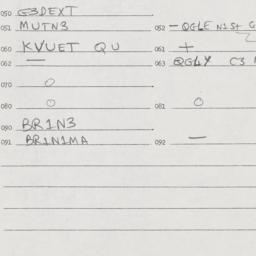 050 G3DEXT
051 MUTN3 052 - QGLE N1St G
060 KVUET QU 061 +
062 — 063 QGLY C3
070 O
080 O 081 O
090 BR1N3
091 BR1N1MA 092 —